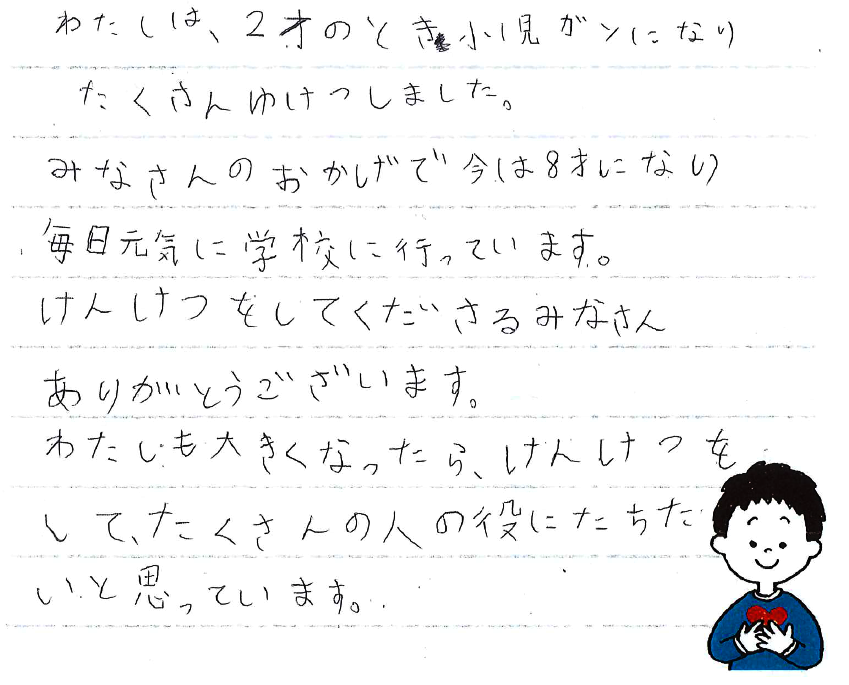 わたしは、2才のとき小児ガンになり
たくさんゆけつしました。
みなさんのおかげで今は8才になり
毎日元気に学校に行っています。
けんけつをしてくださるみなさん
ありがとうございます。
わたしも大きくなったら、けんけつを
して、たくさんの人の役にたちた
いと思っています。